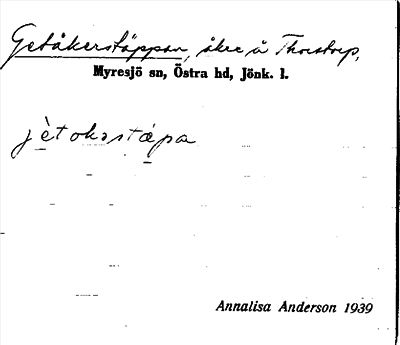 Getåkerstäppan, åker å Thorstorp,
Myresjö sn, Östra hd, Jönk. l.
jètokəstæpa
Annalisa Anderson 1939